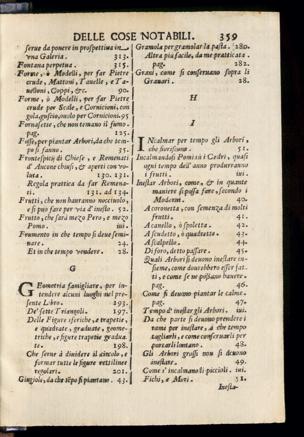 DELLE COSE NOTABILI. 359
serue da ponere in prospettiua in
vna Galeria. 313.
Fontana perpetua. 315.
Forme, ò Modelli, per far Pietre
crude, Mattoni, Tauelle, e Ta-
uelloni, Coppi, &c. 90.
Forme, ò Modelli, per far Pietre
crude per Scale, e Cornicioni, con
gola, guscio, ouolo per Cornicioni. 95.
Fornasette, che non temano il fumo.
pag. 125.
Fosse, per piantar Arbori, da che tem-
po si fanno. 35.
Frontespitij di Chiese, e Remenati
d'Ancone chiusi, & aperti con vo-
luta. 130. 131.
Regola prattica da far Remena-
ti. 131. ad 134.
Frutti, che non haueranno nocciuolo,
e si può fare per via d'insito. 52.
Frutto, che sarà mezo Pero, e mezo
Pomo. iui.
Frumento in che tempo si deue semi-
nare. 24.
Et in che tempo vendere. 28.
G
GEometria famigliare, per in-
tendere alcuni luoghi nel pre-
sente Libro. 193.
De' sette Triangoli. 197.
Delle Figure sferiche, e trapetie,
e quadrate, graduate, geome-
triche, e figure trapetie gradua-
te. 198.
Che serue à diuidere il circolo, e
formar tutte le figure rettilinee
regolari. 201.
Giugiole, da che tẽpo si piantano. 43.
Gramola per gramolar la pasta. 280.
Altra più facile, da me pratticata.
pag. 282.
Grani, come si conseruano sopra li
Granari. 28.
H
I
INcalmar per tempo gli Arbori,
che fiorissino. 51.
Incalmandosi Pomi sù i Cedri, quasi
ogni tempo dell'anno produrranno
i frutti. iui.
Inestar Arbori, come, & in quante
maniere si possa fare, secondo i
Moderni. 40.
A coronetta, con semenza di molti
frutti. 41.
A canello, ò spoletto. 42.
A scudetto, ò quadretto. 43.
A scalpello. 44.
Di foro, detto passare. 45.
Quali Arbori si deuono inestare in-
sieme, come dourebbero esser fat-
ti, e come se ne possano hauere.
pag. 46.
Come si deuono piantar le calme.
pag. 47.
Tempo d'inestar gli Arbori. iui.
Da che parte si deuono prendere i
rami per inestare, à che tempo
tagliarli, e come conseruarli per
portarli lontani. 48.
Gli Arbori grossi non si deuono
inestare. 49.
Come s'incalmano li piccioli. iui.
Fichi, e Mori. 51.
Inesta-